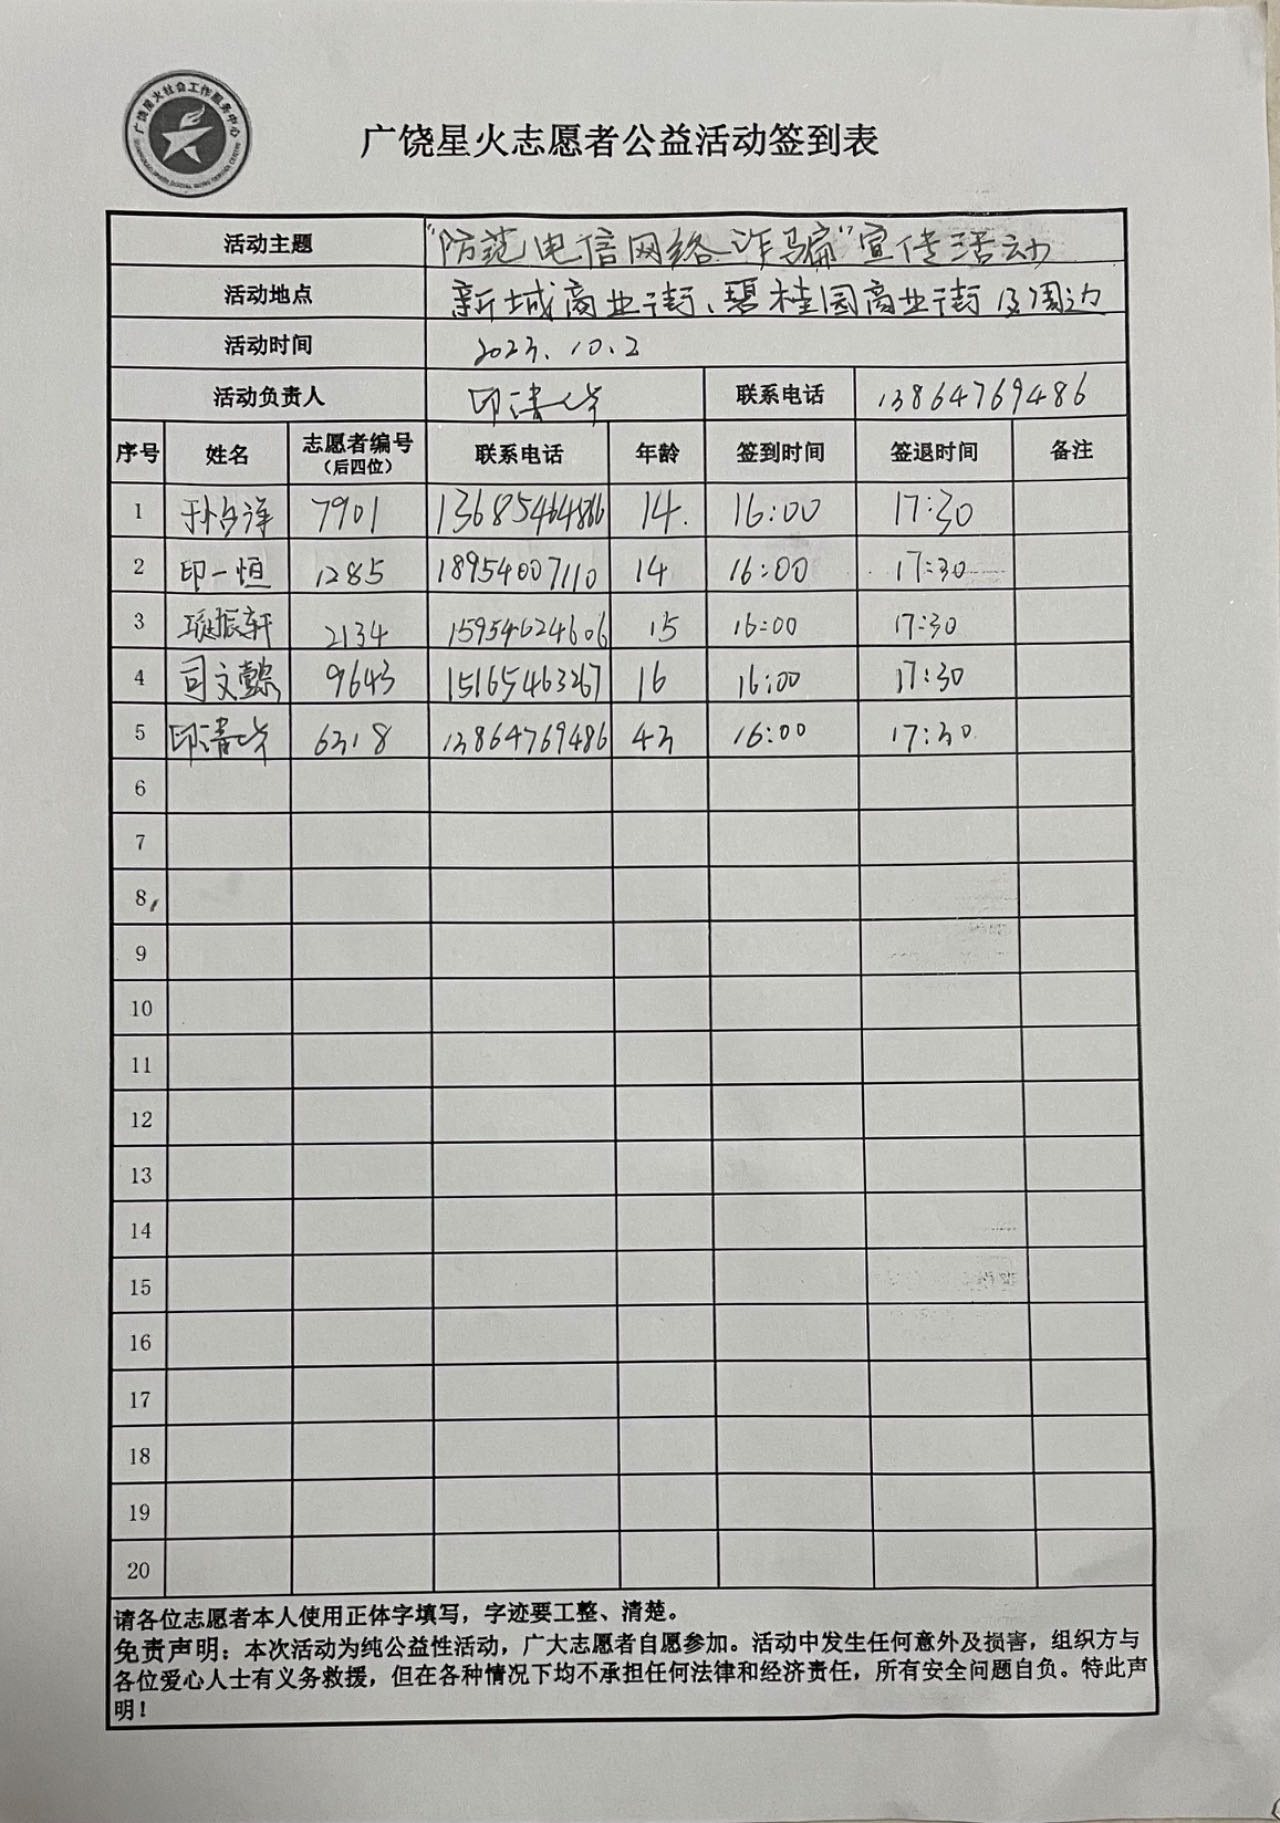 广饶星火社会工作服务中心
广饶星火志愿者公益活动签到表
活动主题 “防范电信网络诈骗”宣传活动
活动地点 新城商业街、碧桂园商业街及周边
活动时间 2023.10.2
活动负责人 印清华 联系电话 13864769486
序号 姓名 志愿者编号（后四位） 联系电话 年龄 签到时间 签退时间 备注
1 7901 13685464866 14. 16:00 17:30
2 印一恒 1285 18954007110 14 16:00 17:30
3 振轩 2134 15954624606 15 16:00 17:30
4 司文懿 9643 15165463267 16 16:00 17:30
5 印清华 6318 13864769486 43 16:00 17:30
6
7
8
9
10
11
12
13
14
15
16
17
18
19
20
请各位志愿者本人使用正体字填写，字迹要工整、清楚。
免责声明：本次活动为纯公益性活动，广大志愿者自愿参加。活动中发生任何意外及损害，组织方与
各位爱心人士有义务救援，但在各种情况下均不承担任何法律和经济责任，所有安全问题自负。特此声
明！